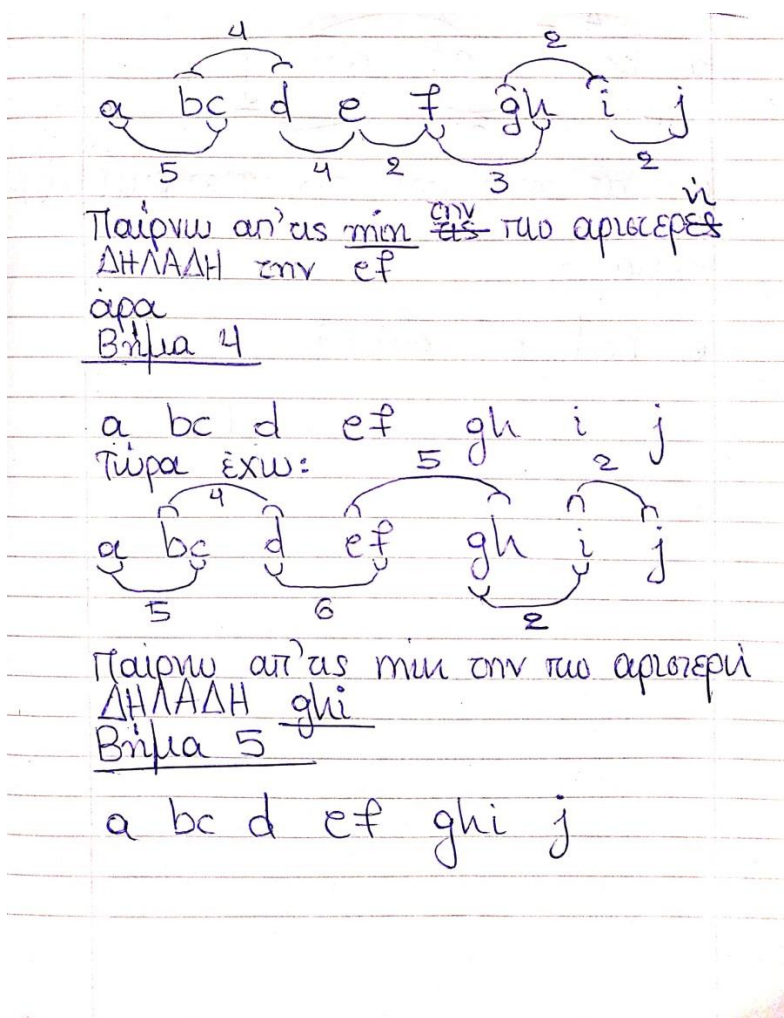 4 2
a bc d e f gh i j
5 4 2 3 2
Παίρνω απ'τις min τις την πιο αριστερές ή
ΔΗΛΑΔΗ την ef
άρα
Βήμα 4
a bc d ef gh i j
Τώρα έχω:
4 5 2
a bc d ef gh i j
5 6 2
Παίρνω απ'τις min την πιο αριστερή
ΔΗΛΑΔΗ ghi
Βήμα 5
a bc d ef ghi j